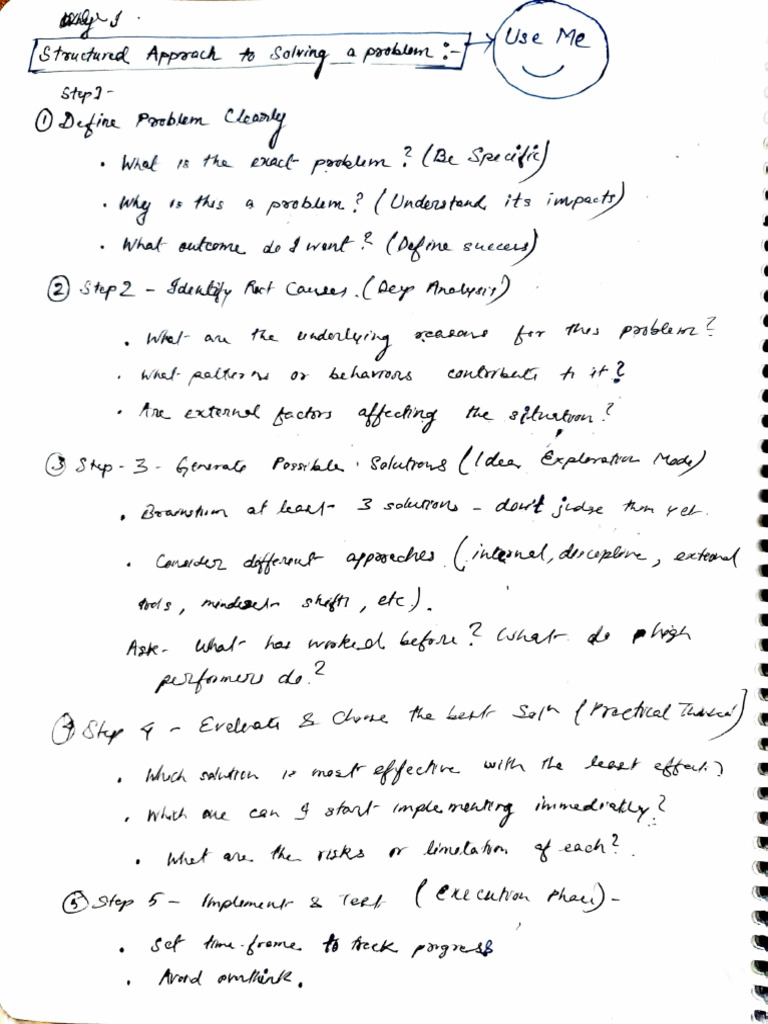 Structured Approach to Solving a problem :-
Use Me
Step 1-
① Define Problem Clearly
• What is the exact problem? (Be Specific)
• Why is this a problem? (Understand its impacts)
• What outcome do I want? (Define success)
② Step 2 - Identify Root Causes. (Deep Analysis)
• What are the underlying reasons for this problem?
• What patterns or behaviors contribute to it?
• Are external factors affecting the situation?
③ Step - 3 - Generate Possible Solutions (Idea Exploration Mode)
• Brainstorm at least 3 solutions - don't judge them yet.
• Consider different approaches (internal, discipline, external
tools, mindset shifts, etc).
Ask - What has worked before? What do high
performers do?
④ Step 4 - Evaluate & Choose the best Solⁿ (Practical
• Which solution is most effective with the least effort?
• Which one can I start implementing immediately?
• What are the risks or limitation of each?
⑤ Step 5 - Implement & Test (Execution Phase) -
• Set time-frame to track progress
• Avoid overthink.